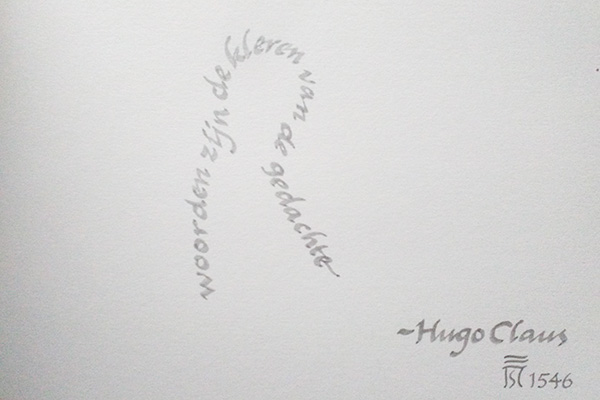 woorden zijn de kleren van de gedachte
~Hugo Claus
1546